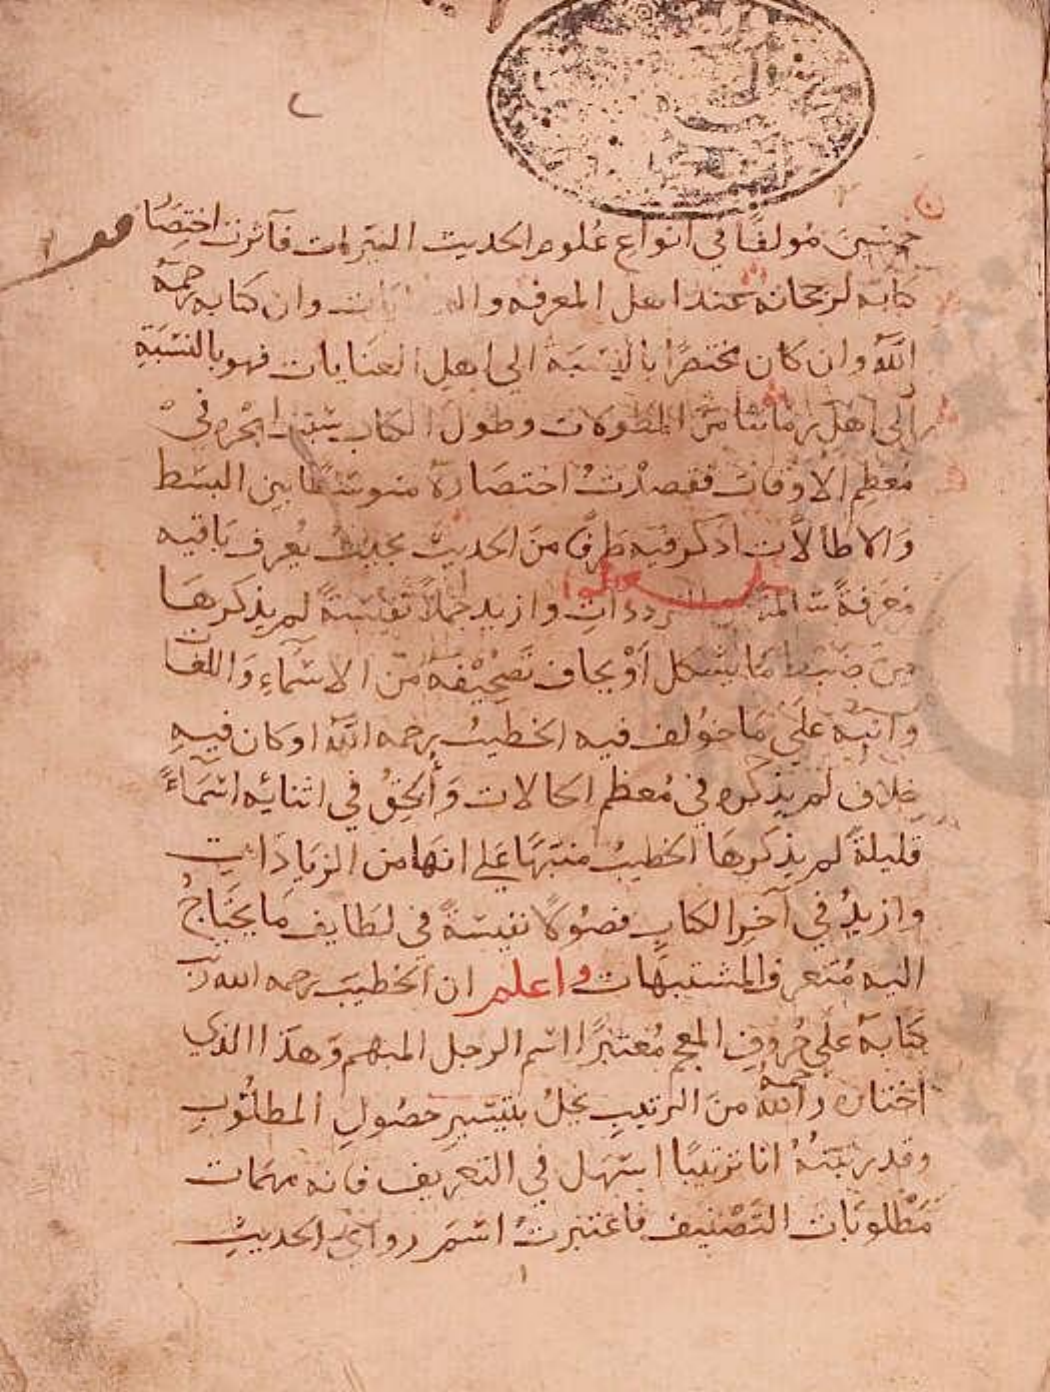 خمسين مولفًا في أنواع علوم الحديث فآثرت اختصا
كتابه لرجحانه عند اهل المعرفه وان كتابه رحمه
الله وان كان مختصرًا بالنسبة الى اهل العنايات فهو بالنسبة
الى اهل زماننا من المطولات وطول الكتاب في
معظم الاوقات فقصدت اختصاره متوسطا بين البسط
والاطالات اذكر فيه طرفًا من الحديث بحيث يعرف باقيه
معرفةً وازيد جملاً نفيسةً لم يذكرها
من ضبط ما يشكل أو يخاف تصحيفه من الاسماء واللغا
وأنبه على ما خولف فيه الخطيب رحمه الله او كان فيه
خلاف لم يذكره في معظم الحالات وألحق في اثنائه اسماءً
قليلةً لم يذكرها الخطيب منبهًا على انها من الزيادات
وازيد في آخر الكتاب فصولا نفيسةً في لطايف ما يحتاج
اليه متعرف المشتبهات واعلم ان الخطيب رحمه الله رتب
كتابه على حروف المعجم معتبرًا اسم الرجل المبهم وهذا الذي
اختاره رحمه الله من الترتيب يخل بتيسير حصول المطلوب
وقد رتبته انا ترتيبًا اسهل في التعريف فانه مهمات
مطلوبات التصنيف فاعتبرت اسم راوي الحديث